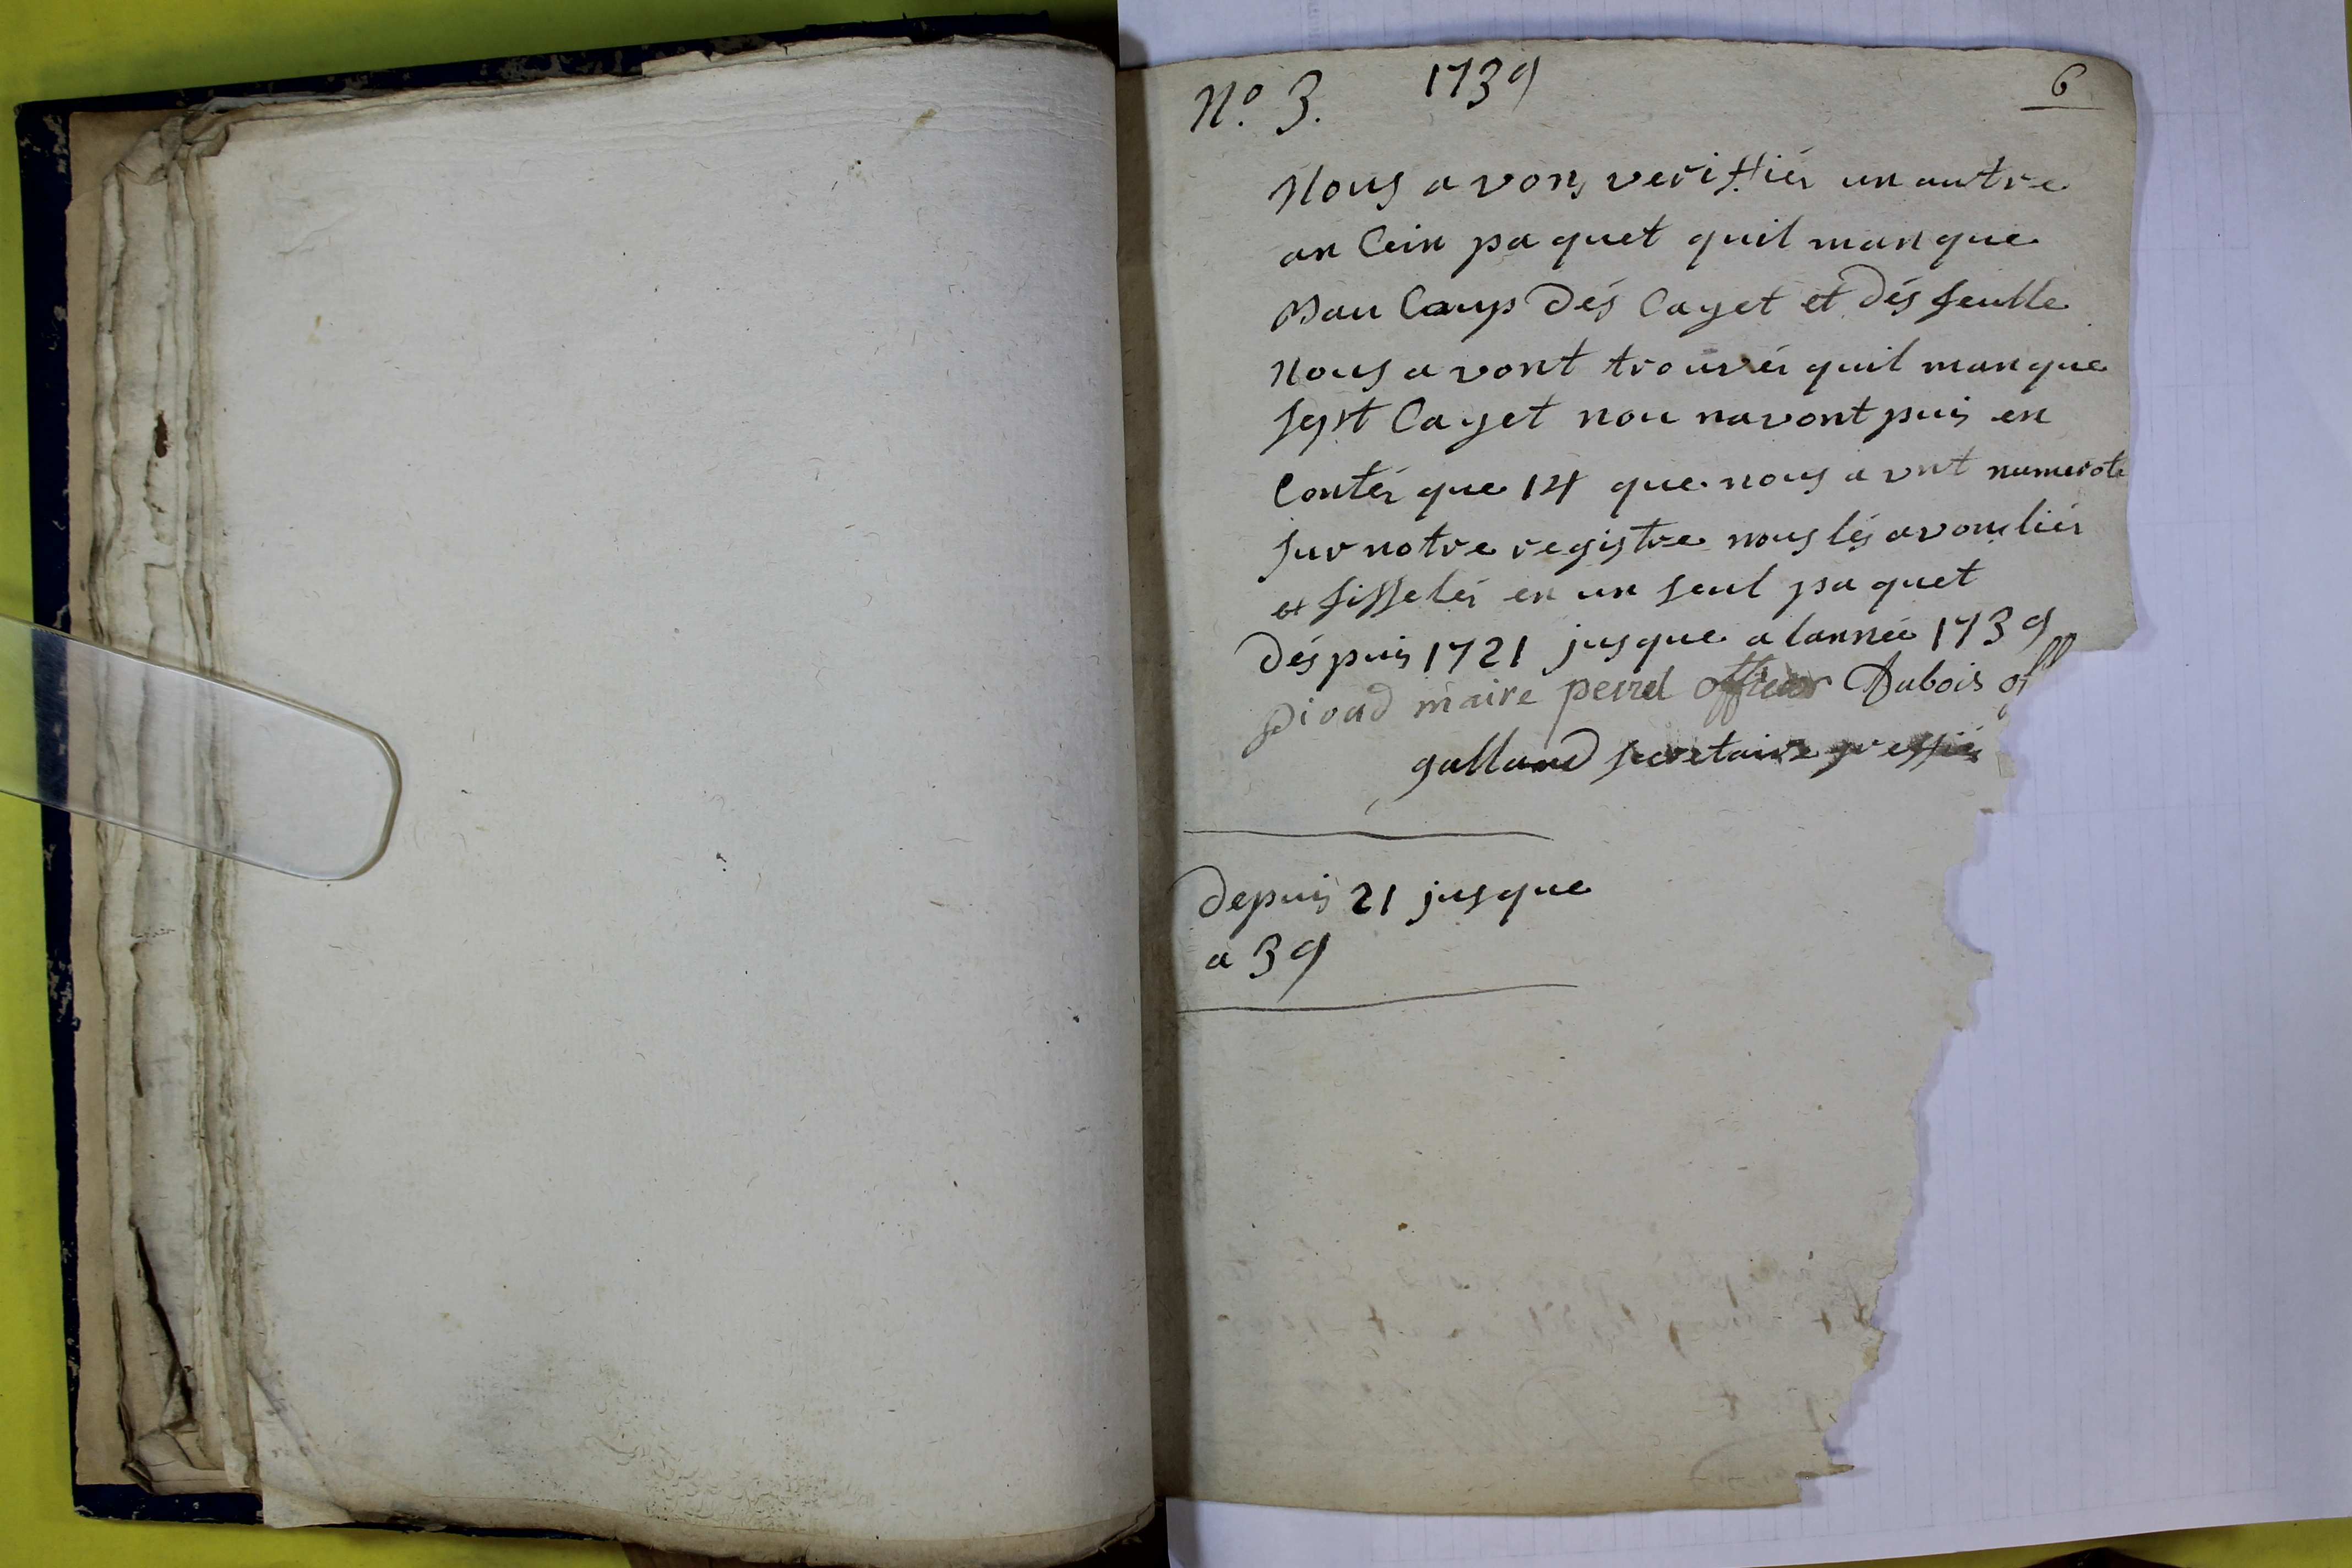 N.o 3. 1739 6
Nous avons veriffiér un autre
an Cein paquet quil manque
Bau Coup dés Cayet et dés feulle
Nous avont trouvér quil manque
sept Cayet nou navont puis en
Contér que 14 que nous avnt numerote
sur notre registre nous lés avons liér
et fisselér en un seul paquet
déspuis 1721 jusque a lannéé 1739
maire perrel officier Dubois off
galland secretaire greffiér
depuis 21 jusque
a 39